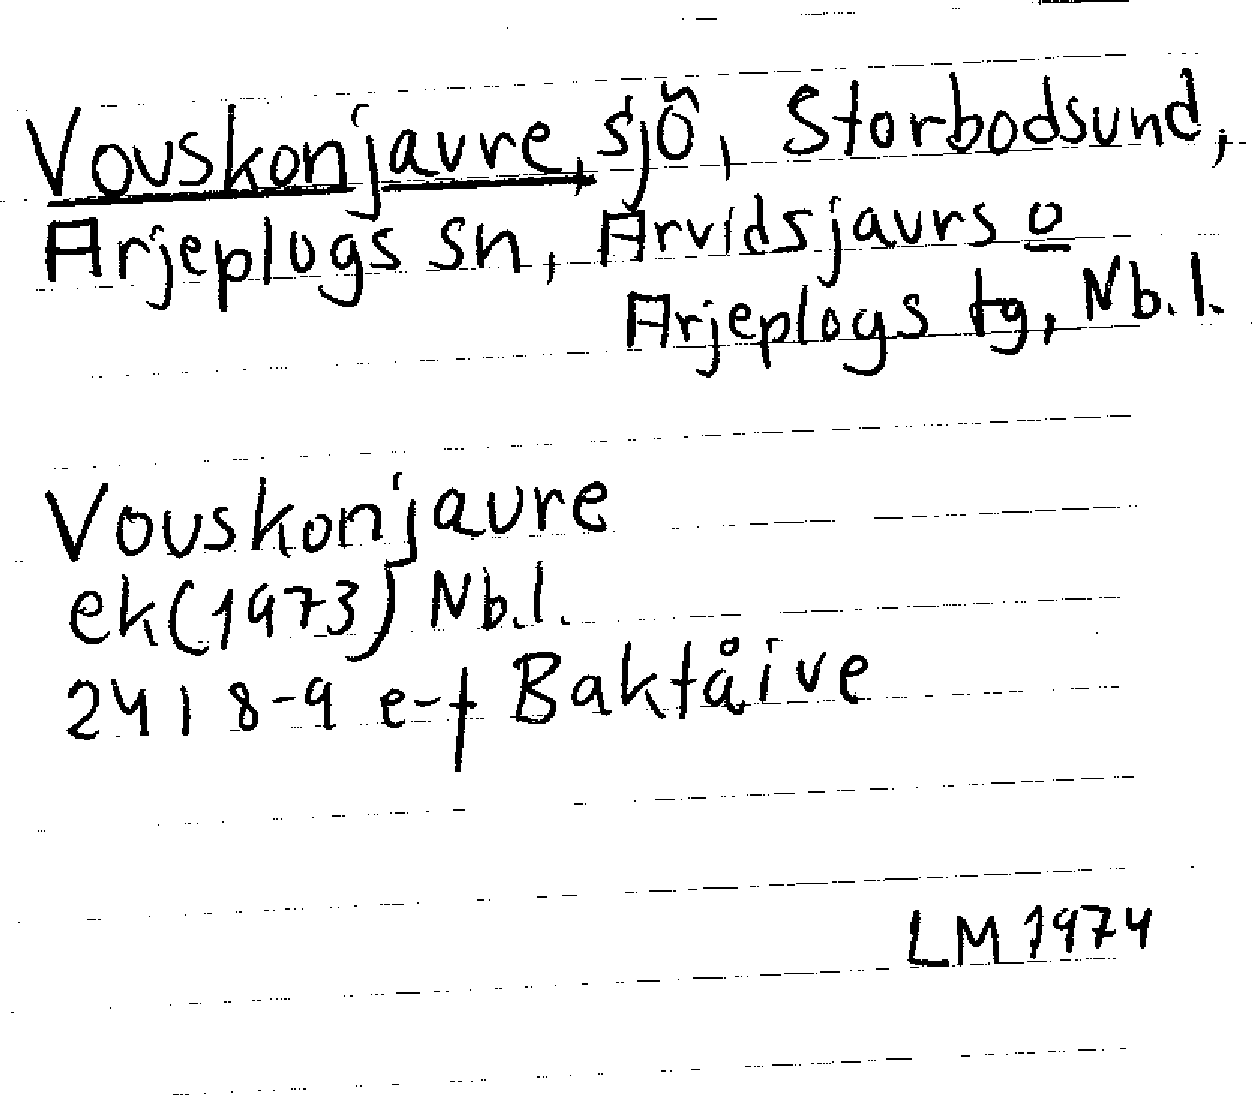 Vouskonjavre, sjö, Storbodsund,
Arjeplogs sn, Arvidsjaurs o
Arjeplogs tg, Nb.l.
Vouskonjaure
ek(1973) Nb.l.
241 8-9 e-f Baktåive
LM 1974